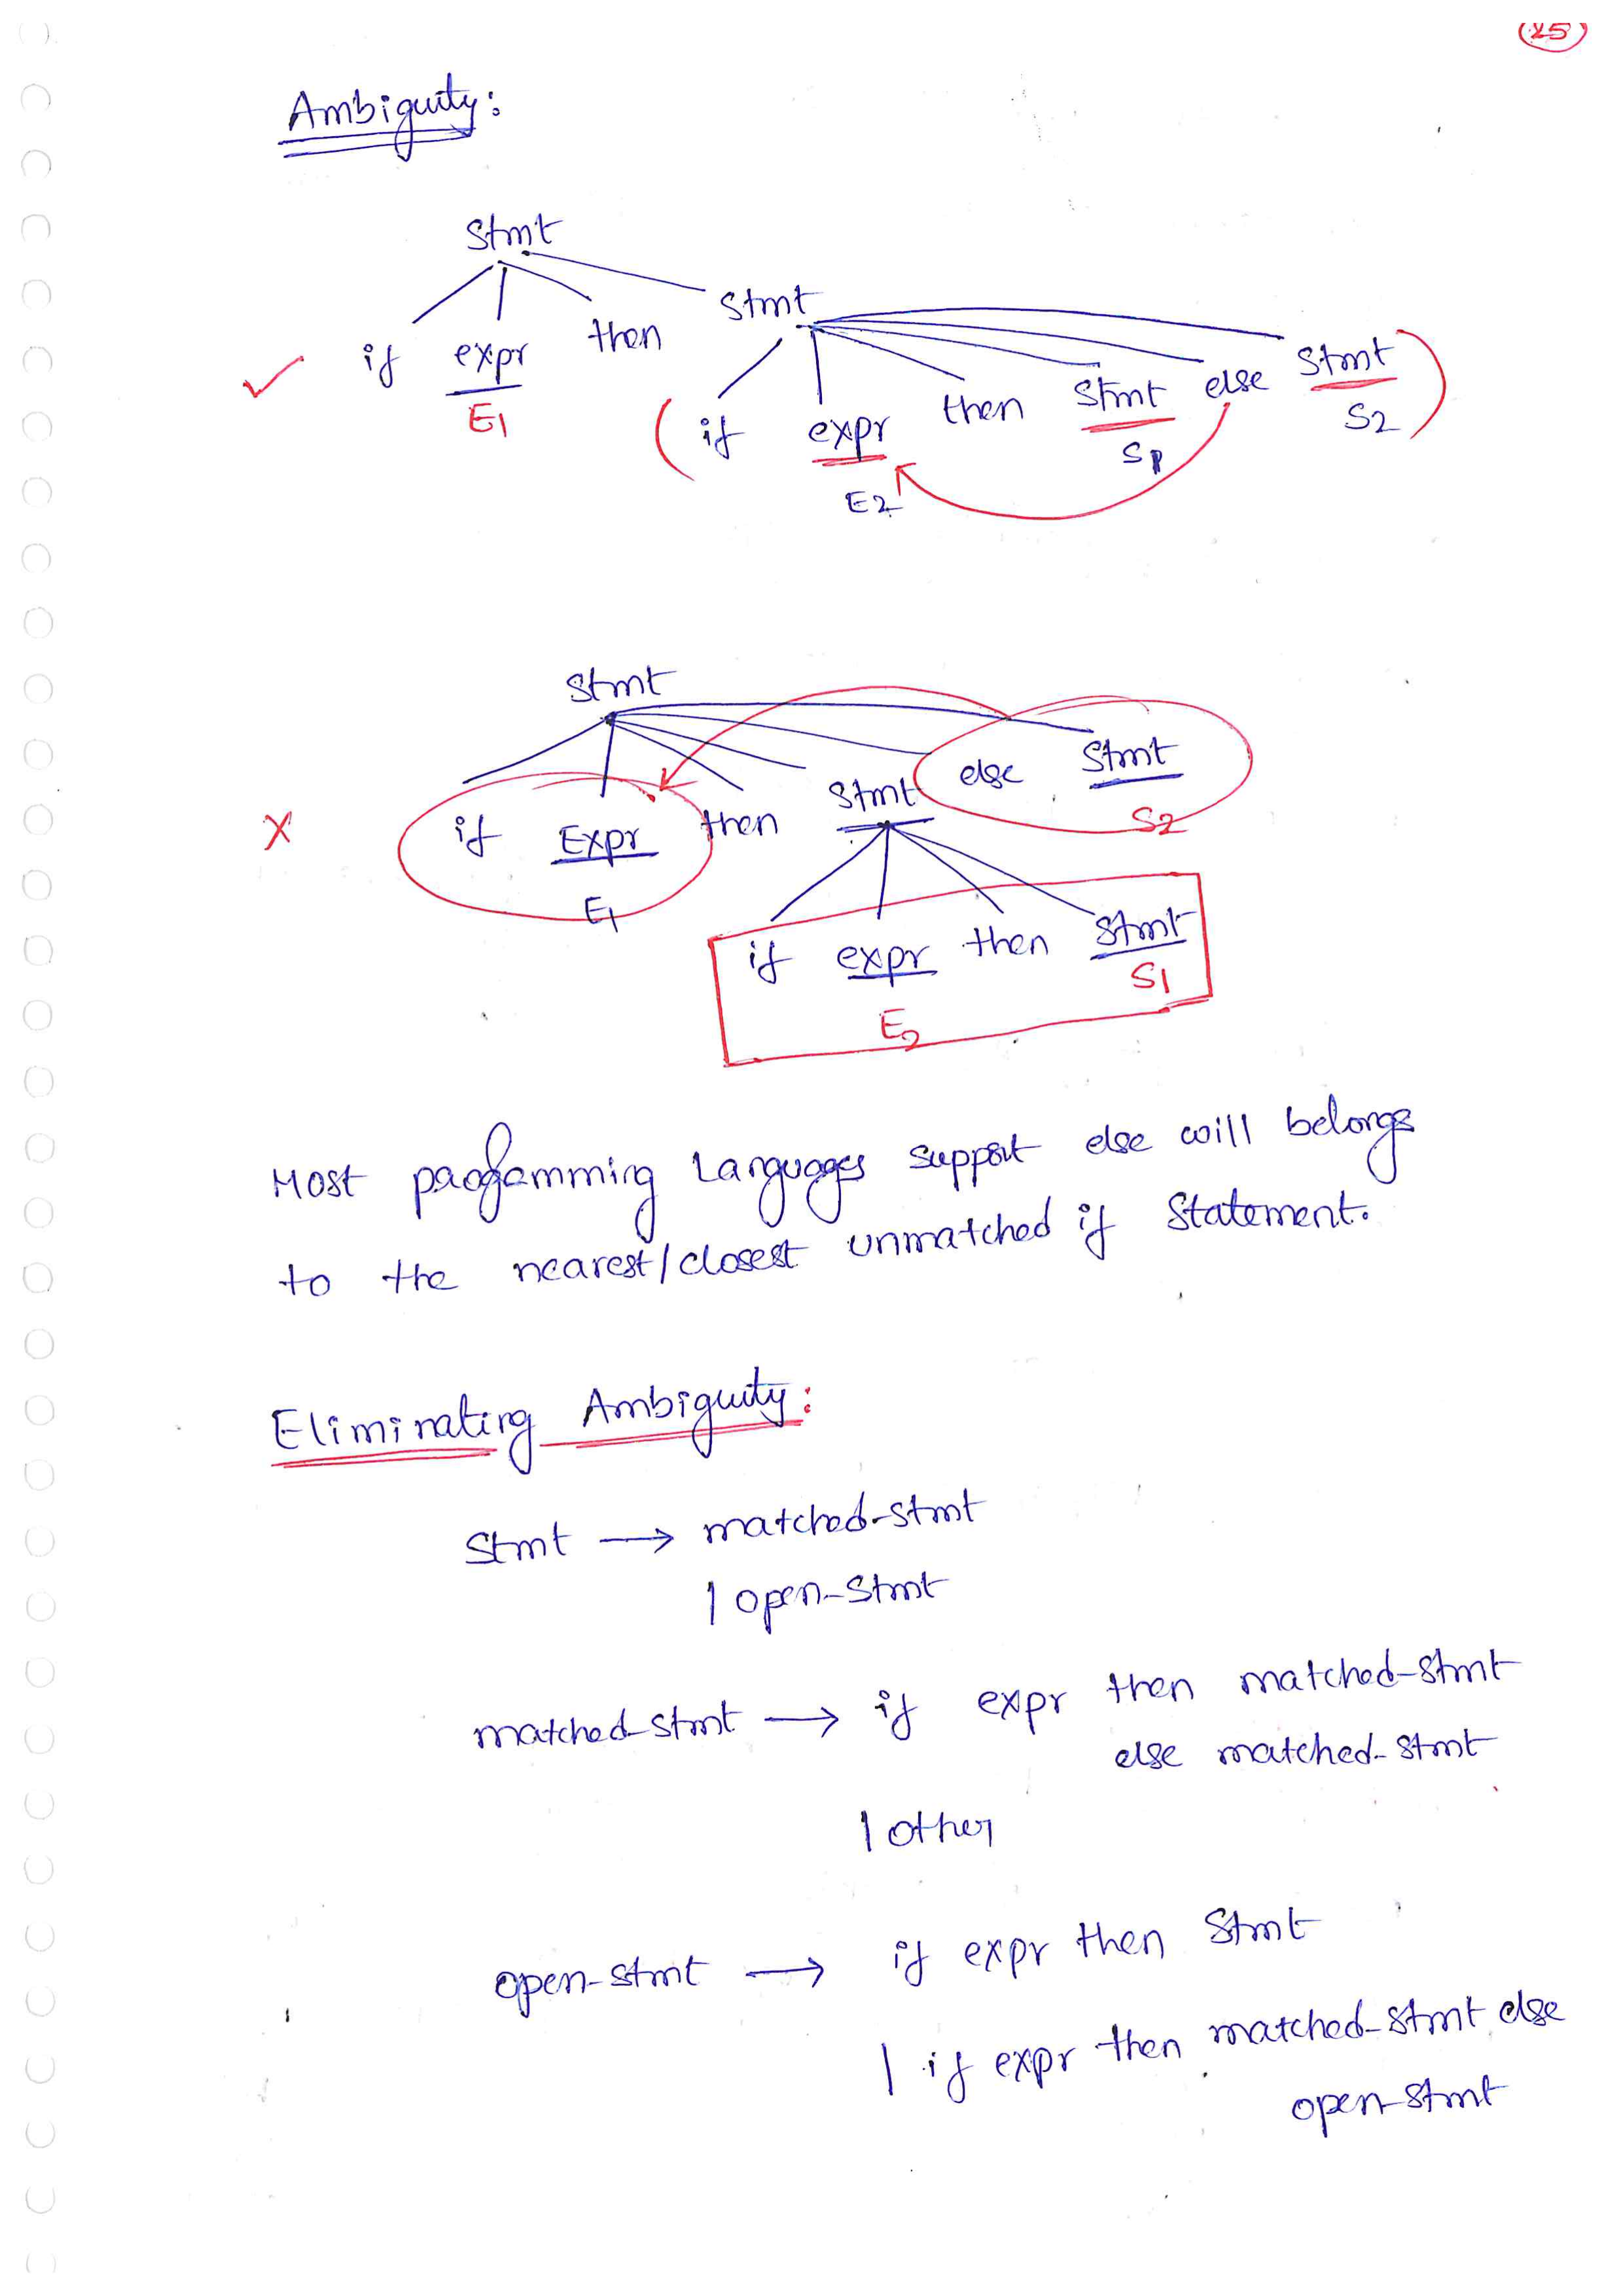 25
Ambiguity:
Stmt
if expr then Stmt
E1
if expr then Stmt else Stmt
E2 S1 S2
Stmt
if Expr then Stmt else Stmt
E1 S2
if expr then Stmt
E2 S1
Most progamming Languages support else will belongs
to the nearest/closest unmatched if Statement.
Eliminating Ambiguity:
Stmt → matched-stmt
| open-Stmt
matched-stmt → if expr then matched-stmt
else matched-stmt
| other
open-stmt → if expr then Stmt
| if expr then matched-stmt else
open-stmt